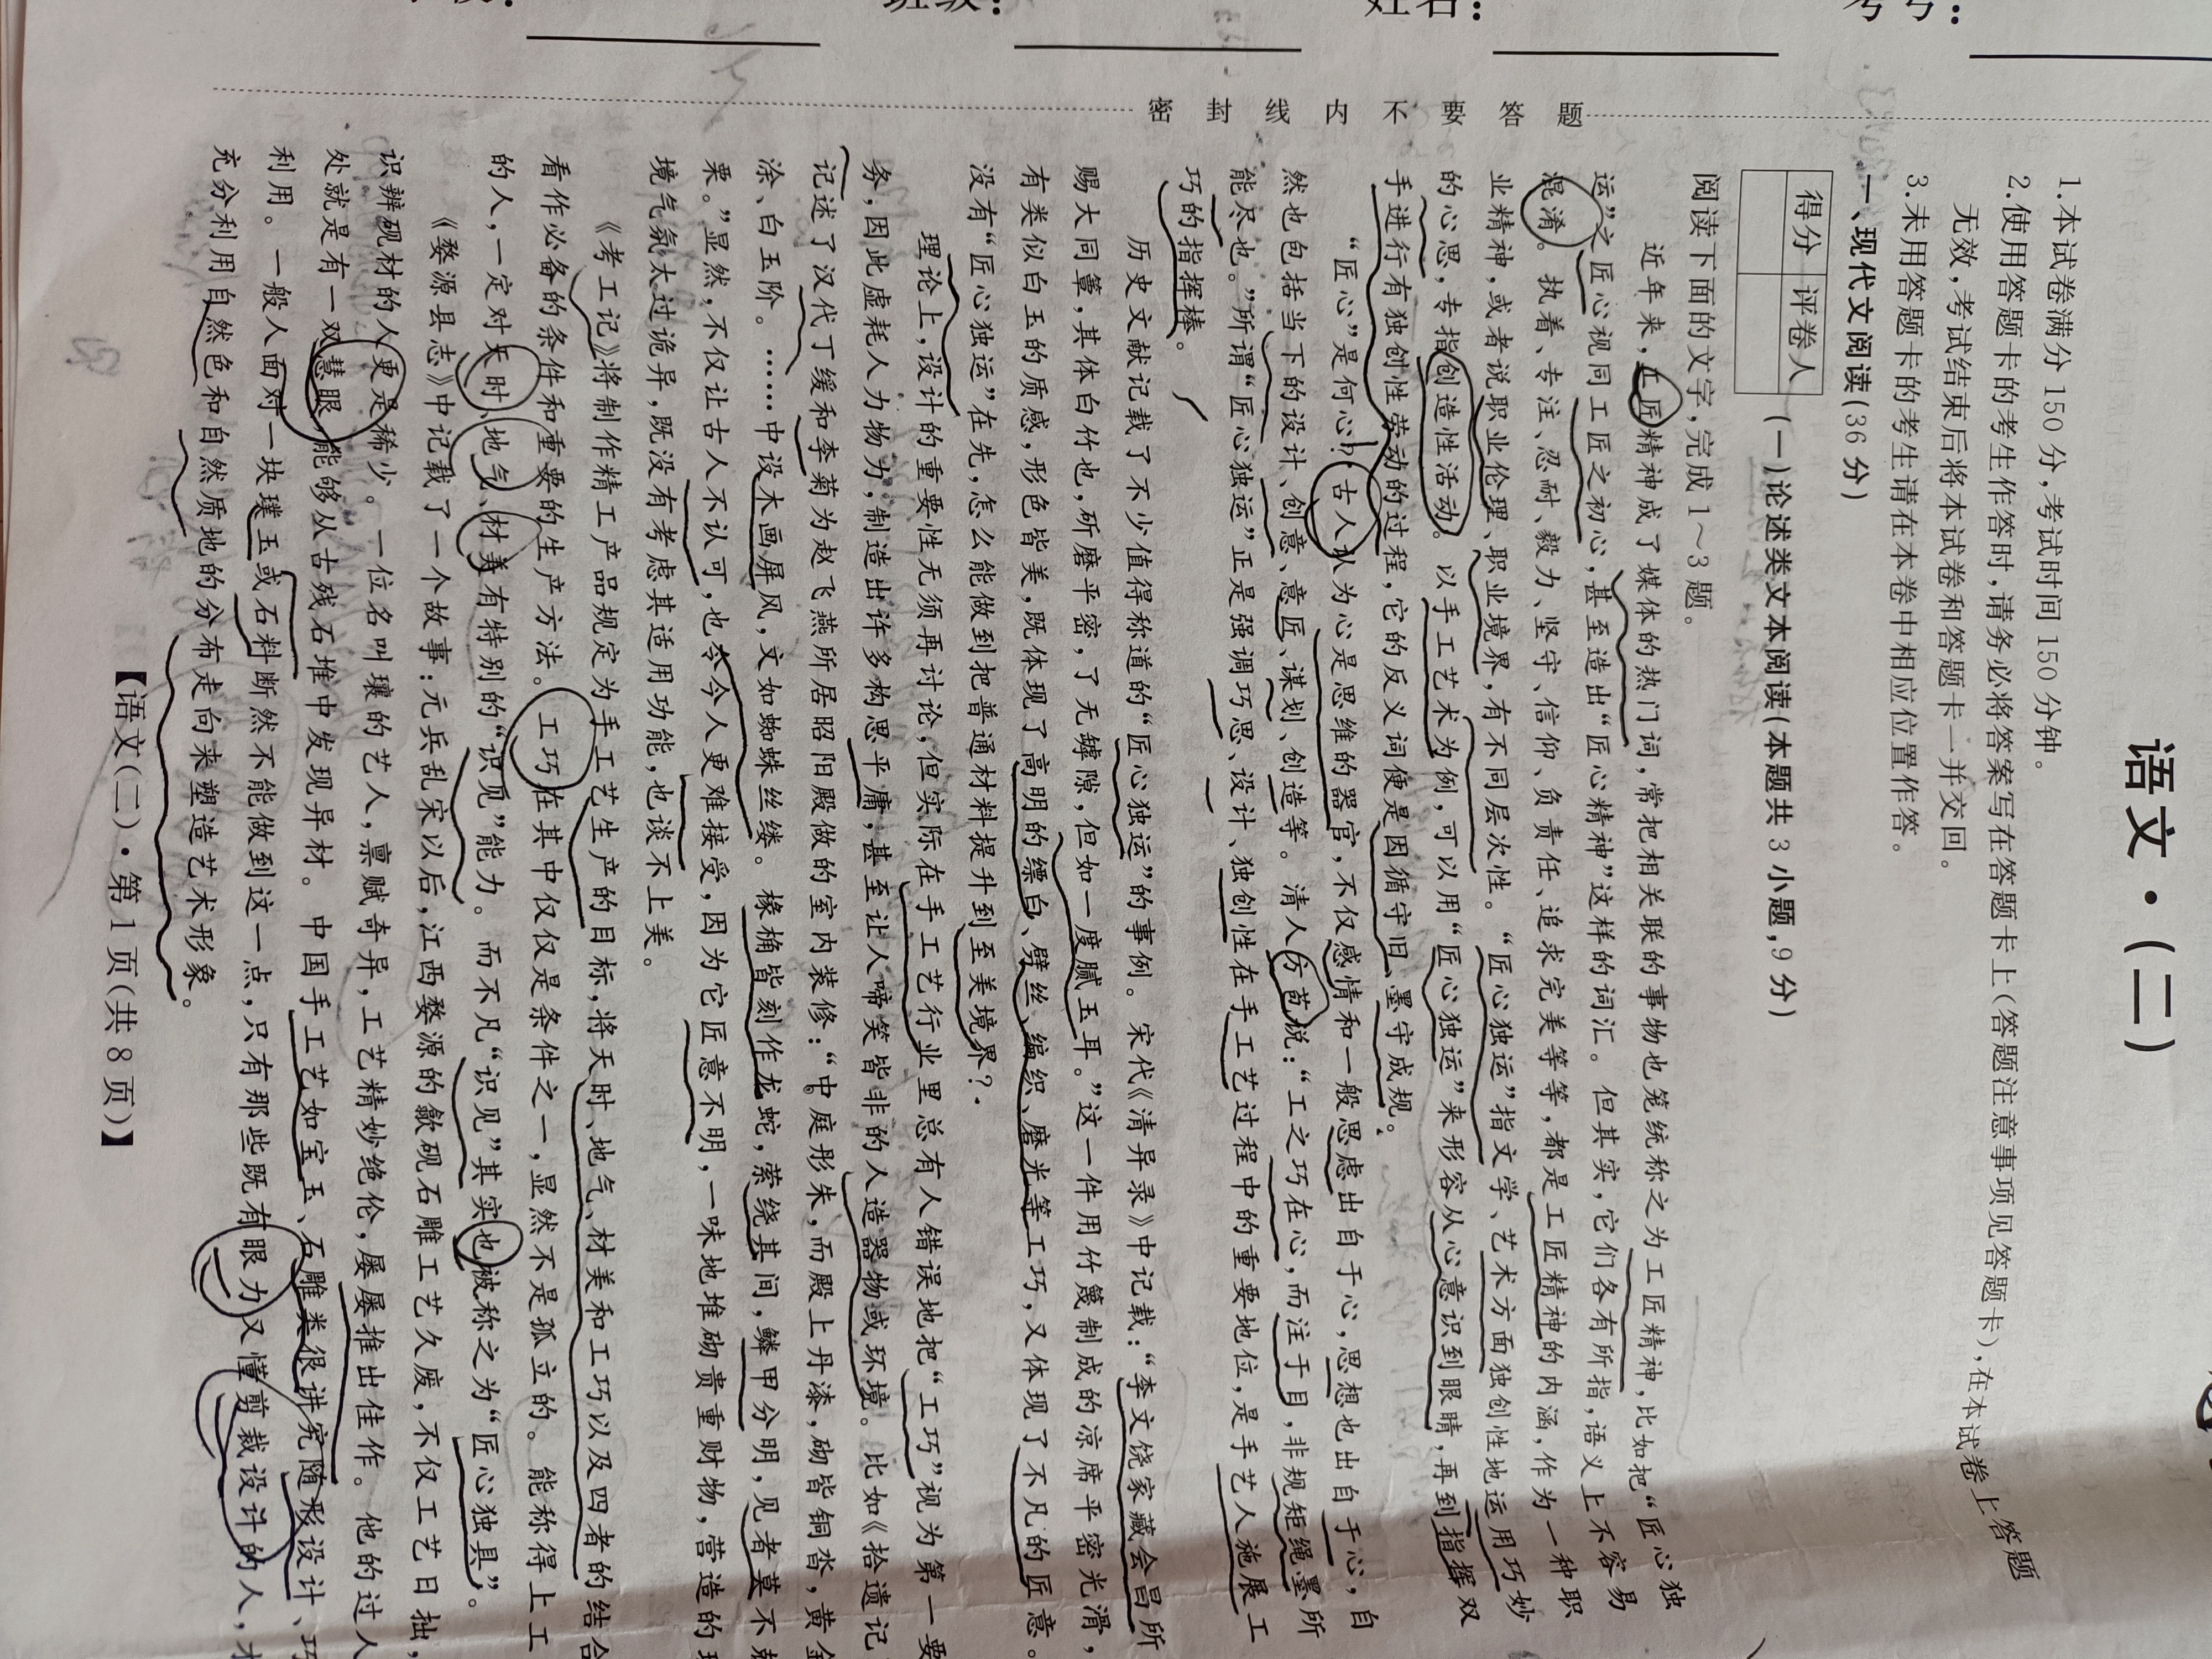 班级：
姓名：
考号：
密封线内不要答题
语文·(二)
1.本试卷满分150分,考试时间150分钟。
2.使用答题卡的考生作答时,请务必将答案写在答题卡上(答题注意事项见答题卡),在本试卷上答题
无效,考试结束后将本试卷和答题卡一并交回。
3.未用答题卡的考生请在本卷中相应位置作答。
得分 评卷人
一、现代文阅读(36分)
(一)论述类文本阅读(本题共3小题,9分)
阅读下面的文字,完成1～3题。
近年来,工匠精神成了媒体的热门词,常把相关联的事物也笼统称之为工匠精神,比如把“匠心独
运”之匠心视同工匠之初心,甚至造出“匠心精神”这样的词汇。但其实,它们各有所指,语义上不容易
混淆。执着、专注、忍耐、毅力、坚守、信仰、负责任、追求完美等等,都是工匠精神的内涵,作为一种职
业精神,或者说职业伦理、职业境界,有不同层次性。“匠心独运”指文学、艺术方面独创性地运用巧妙
的心思,专指创造性活动。以手工艺术为例,可以用“匠心独运”来形容从心意识到眼睛,再到指挥双
手进行有独创性劳动的过程,它的反义词便是因循守旧、墨守成规。
“匠心”是何心?古人认为心是思维的器官,不仅感情和一般思虑出自于心,思想也出自于心,自
然也包括当下的设计、创意、意匠、谋划、创造等。清人方苞说:“工之巧在心,而注于目,非规矩绳墨所
能尽也。”所谓“匠心独运”正是强调巧思、设计、独创性在手工艺过程中的重要地位,是手艺人施展工
巧的指挥棒。
历史文献记载了不少值得称道的“匠心独运”的事例。宋代《清异录》中记载:“李文饶家藏会昌所
赐大同簟,其体白竹也,斫磨平密,了无罅隙,但如一度腻玉耳。”这一件用竹篾制成的凉席平密光滑,
有类似白玉的质感,形色皆美,既体现了高明的缥白、劈丝、编织、磨光等工巧,又体现了不凡的匠意。
没有“匠心独运”在先,怎么能做到把普通材料提升到至美境界?
理论上,设计的重要性无须再讨论,但实际在手工艺行业里总有人错误地把“工巧”视为第一要
务,因此虚耗人力物力,制造出许多构思平庸,甚至让人啼笑皆非的人造器物或环境。比如《拾遗记
记述了汉代丁缓和李菊为赵飞燕所居昭阳殿做的室内装修:“中庭彤朱,而殿上丹漆,砌皆铜沓,黄金
涂、白玉阶。……中设木画屏风,文如蜘蛛丝缕。椽桷皆刻作龙蛇,萦绕其间,鳞甲分明,见者莫不
栗。”显然,不仅让古人不认可,也令今人更难接受,因为它匠意不明,一味地堆砌贵重财物,营造的
境气氛太过诡异,既没有考虑其适用功能,也谈不上美。
《考工记》将制作精工产品规定为手工艺生产的目标,将天时、地气、材美和工巧以及四者的结合
看作必备的条件和重要的生产方法。工巧在其中仅仅是条件之一,显然不是孤立的。能称得上工
的人,一定对天时、地气、材美有特别的“识见”能力。而不凡“识见”其实也被称之为“匠心独具”。
《婺源县志》中记载了一个故事:元兵乱宋以后,江西婺源的歙砚石雕工艺久废,不仅工艺日拙,
识辨砚材的人更是稀少。一位名叫瓖的艺人,禀赋奇异,工艺精妙绝伦,屡屡推出佳作。他的过人
处就是有一双慧眼,能够从古残石堆中发现异材。中国手工艺如宝玉、石雕类很讲究随形设计、巧
利用。一般人面对一块璞玉或石料断然不能做到这一点,只有那些既有眼力又懂剪裁设计的人,才
充分利用自然色和自然质地的分布走向来塑造艺术形象。
【语文(二)·第1页(共8页)】